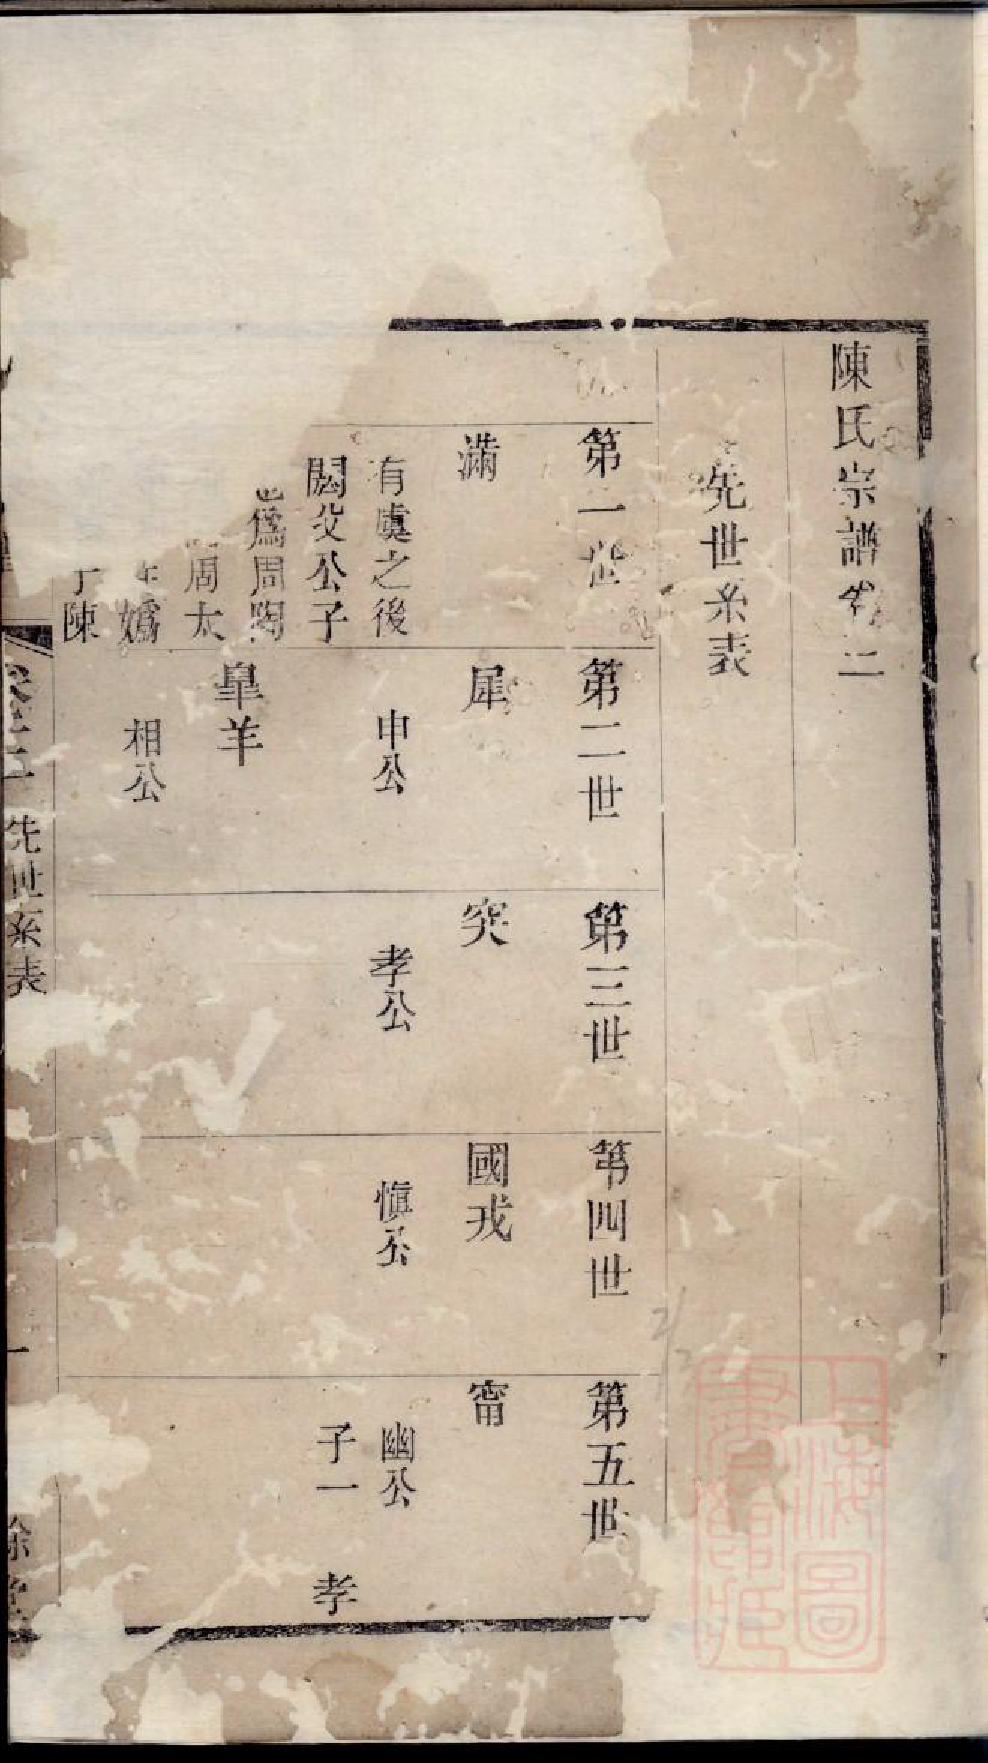 陳氏宗譜卷二
先世系表
第一世
滿
有虞之後
閼父公子
爲周陶
周太
嬀
陳
第二世
犀
申公
皐羊
相公
第三世
突
孝公
第四世
國戎
慎公
第五世
甯
幽公
子一 孝
卷之二 先世系表 一
上海圖
書館藏